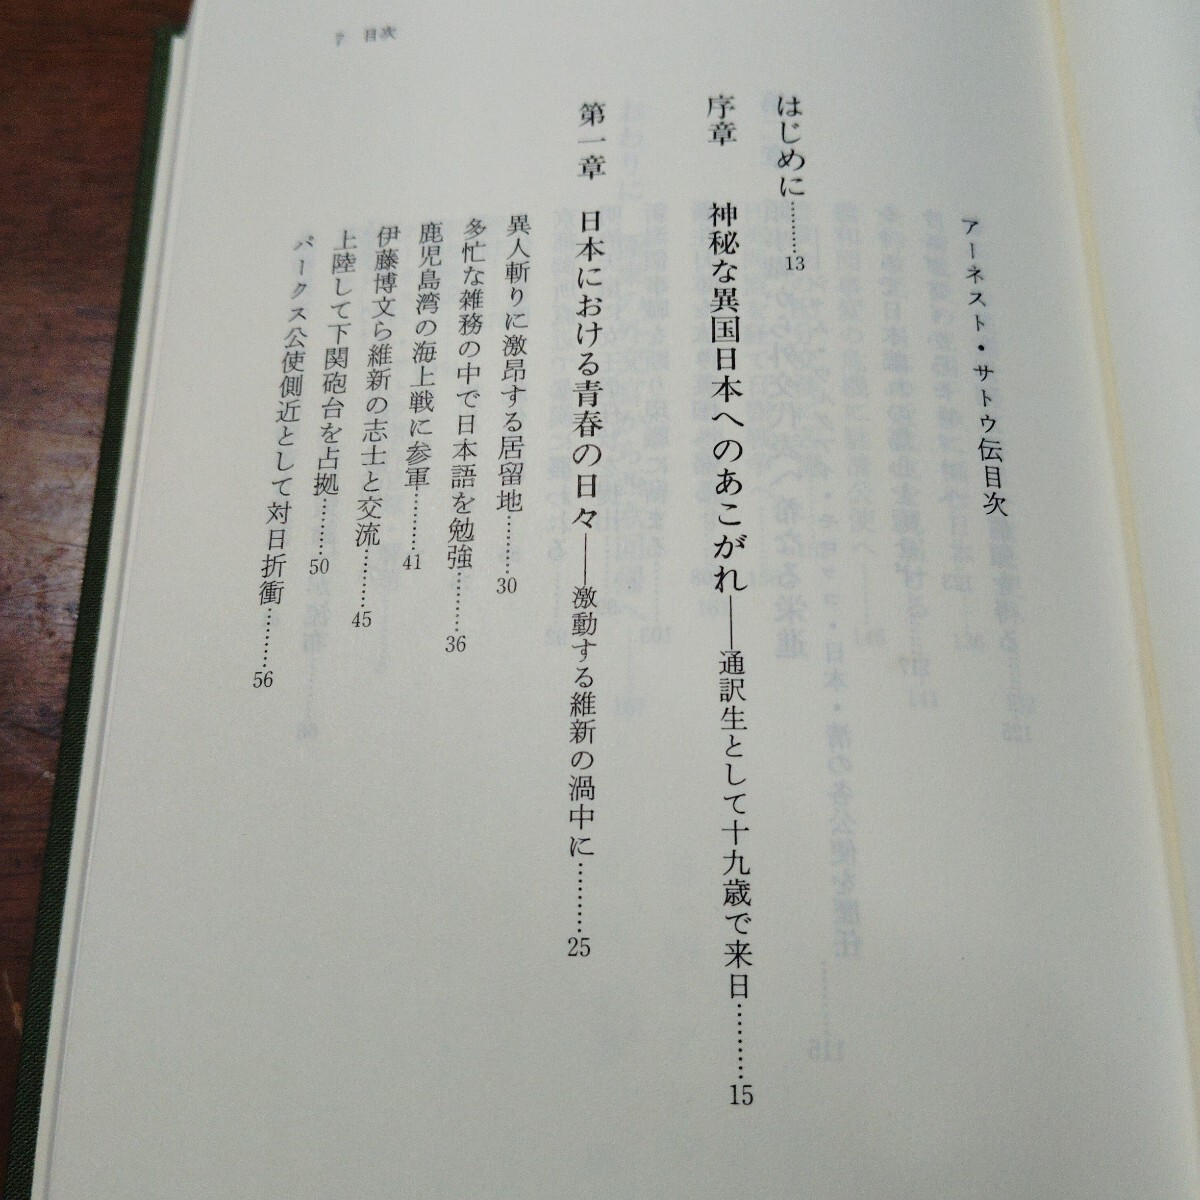 アーネスト・サトウ伝目次
はじめに………13
序章　神秘な異国日本へのあこがれ――通訳生として十九歳で来日………15
第一章　日本における青春の日々――激動する維新の渦中に………25
異人斬りに激昂する居留地………30
多忙な雑務の中で日本語を勉強………36
鹿児島湾の海上戦に参軍………41
伊藤博文ら維新の志士と交流………45
上陸して下関砲台を占拠………50
パークス公使側近として対日折衝………56